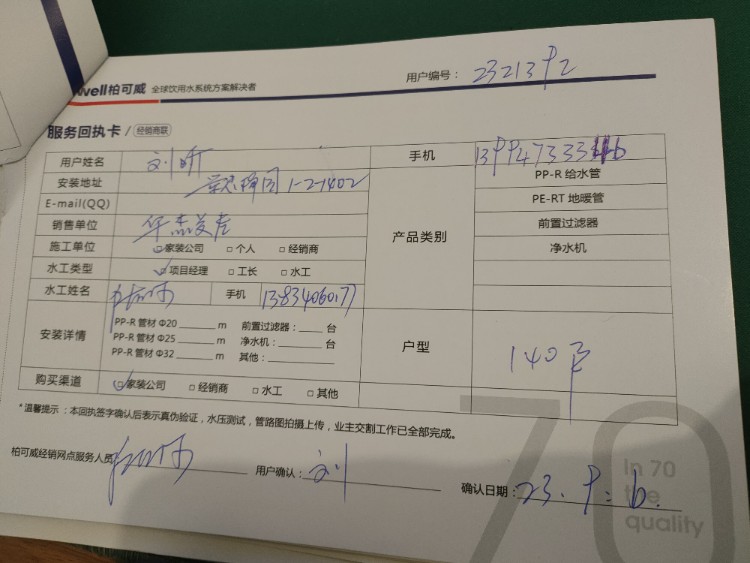 well柏可威 全球饮用水系统方案解决者
用户编号： 2321392
服务回执卡 / 经销商联
用户姓名 刘昕 手机
安装地址 1-2-1402 产品类别 PP-R 给水管
E-mail(QQ) PE-RT 地暖管
销售单位 华杰 前置过滤器
施工单位 家装公司 个人 经销商 净水机
水工类型 项目经理 工长 水工
水工姓名 手机 13834060177
安装详情 PP-R 管材 Φ20 m 前置过滤器： 台
PP-R 管材 Φ25 m 净水机： 台
PP-R 管材 Φ32 m 其他：
户型 140平
购买渠道 家装公司 经销商 水工 其他
*温馨提示：本回执签字确认后表示真伪验证，水压测试，管路图拍摄上传，业主交割工作已全部完成。
柏可威经销网点服务人员 用户确认： 刘 确认日期： 23.9.6.
70
In 70
the
quality